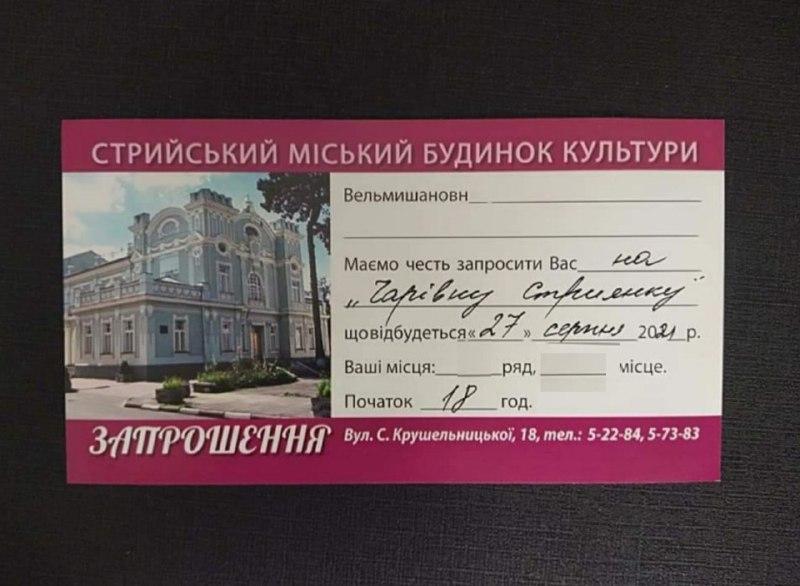 СТРИЙСЬКИЙ МІСЬКИЙ БУДИНОК КУЛЬТУРИ
Вельмишановн
Маємо честь запросити Вас на
„Чарівну Стриянку"
що відбудеться «27» серпня 2021 р.
Ваші місця: ряд, місце.
Початок 18 год.
ЗАПРОШЕННЯ
Вул. С. Крушельницької, 18, тел.: 5-22-84, 5-73-83